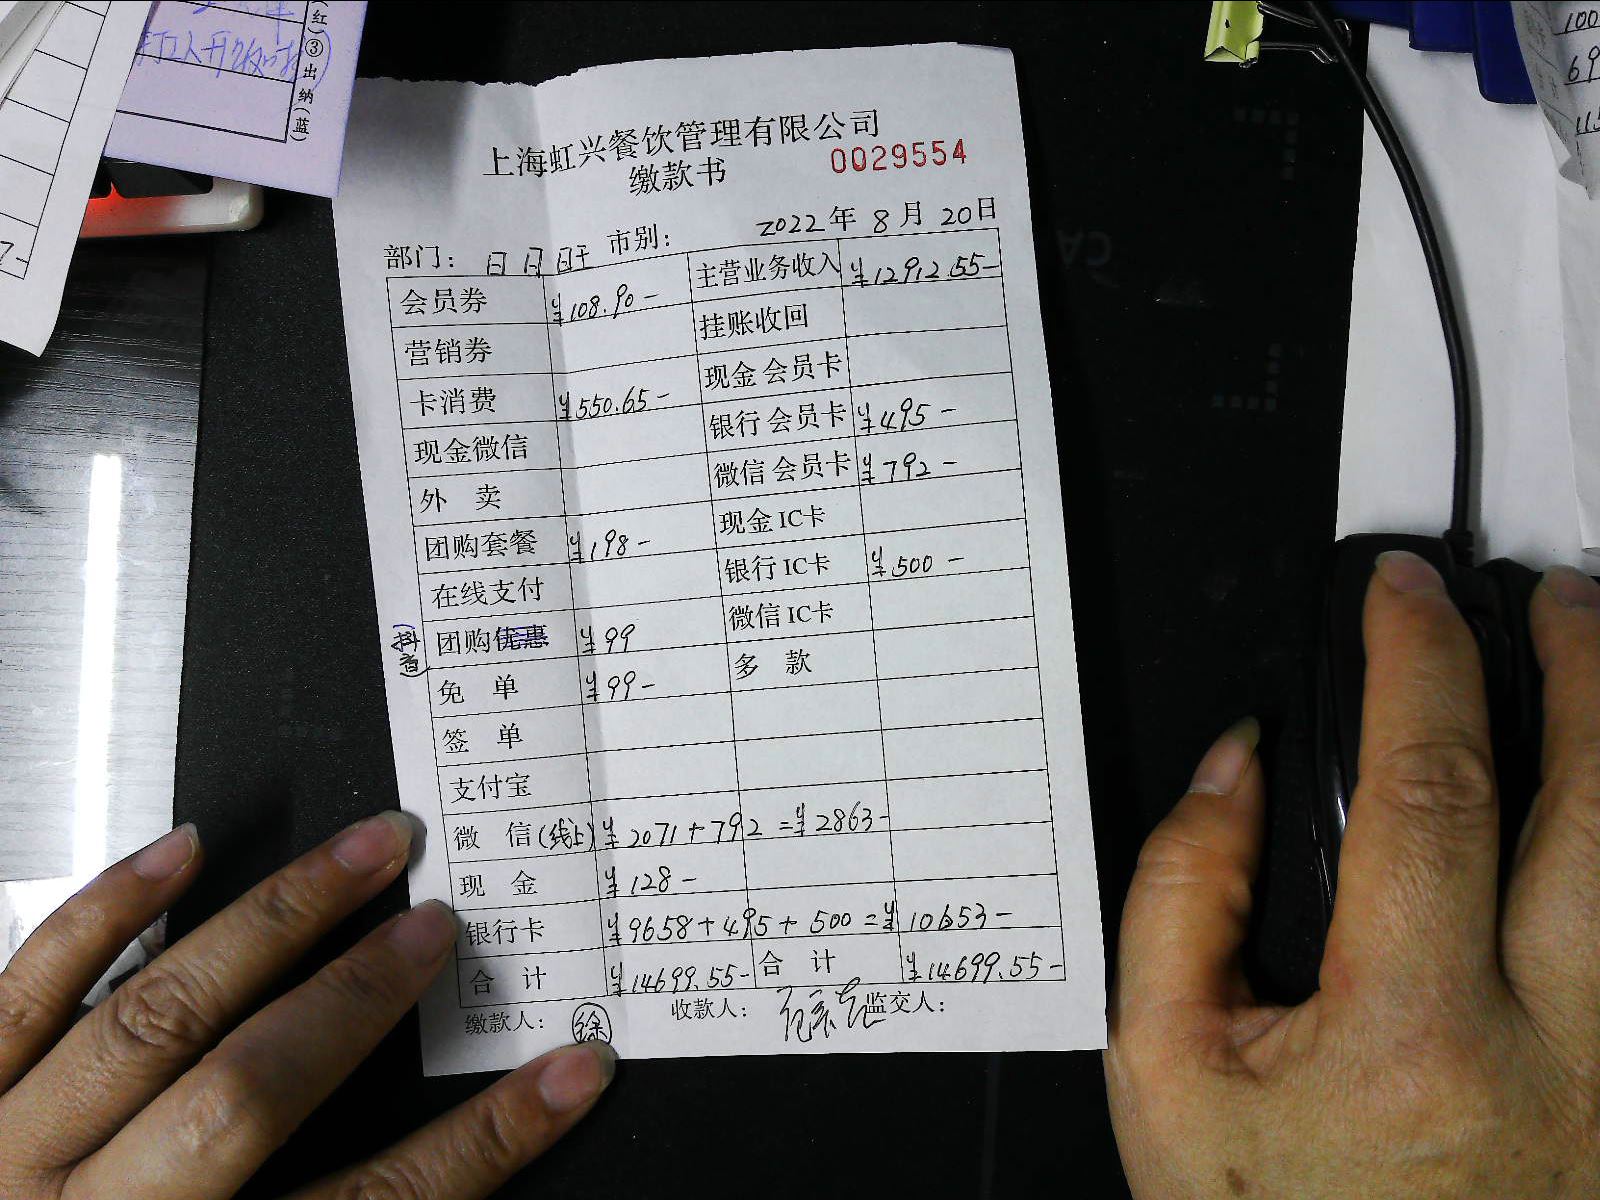 (红)③出纳(蓝)
100
69
115
上海虹兴餐饮管理有限公司
缴款书 0029554
部门: 日月轩 市别: 2022年8月20日
会员券 ¥108.90- 主营业务收入 ¥12912.55-
营销券 挂账收回
卡消费 ¥550.65- 现金会员卡
现金微信 银行会员卡 ¥495-
外 卖 微信会员卡 ¥792-
团购套餐 ¥198- 现金IC卡
在线支付 银行IC卡 ¥500-
(抖音) 团购优惠 ¥99 微信IC卡
免 单 ¥99- 多 款
签 单
支付宝
微 信(线上) ¥2071+792=¥2863-
现 金 ¥128-
银行卡 ¥9658+495+500=¥10653-
合 计 ¥14699.55- 合 计 ¥14699.55-
缴款人: 徐 收款人: 监交人: